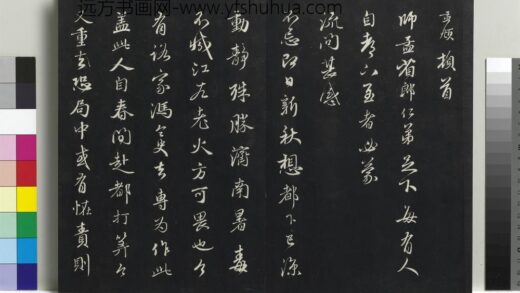 远方书画网-www.yfshuhua.com
頓首
師孟省郎仁弟足下每有人
自都下至者必蒙
流問甚感
不忘即日新秋想都下已涼
動靜殊勝濟南暑毒
不减江左老火方可畏也今
有家馮令史去專為作此
蓋此人自春間赴都打筭今
又重去恐局中或有怪責則